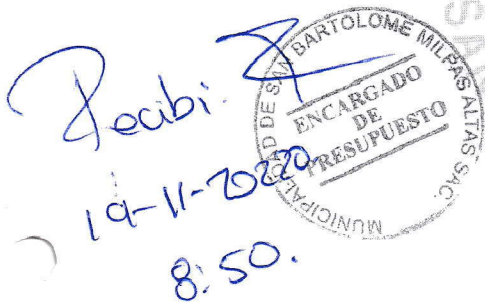 Recibi.
19-11-20220
8:50.
MUNICIPALIDAD DE SAN BARTOLOME MILPAS ALTAS SAC.
ENCARGADO
DE
PRESUPUESTO